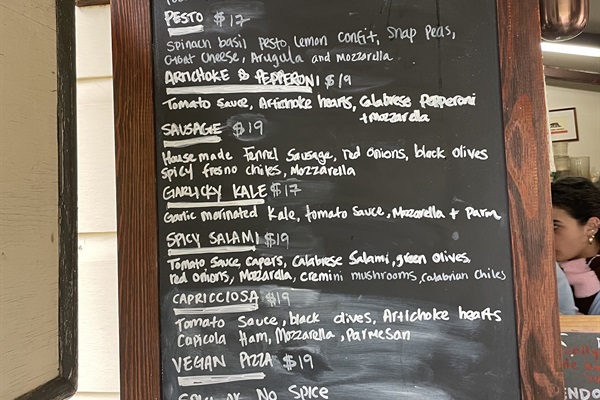 PESTO $17
Spinach basil pesto, lemon confit, Snap Peas,
Goat Cheese, Arugula and Mozzarella
ARTICHOKE & PEPPERONI $19
Tomato Sauce, Artichoke hearts, Calabrese Pepperoni
+ mozzarella
SAUSAGE $19
House made Fennel Sausage, red onions, black olives
Spicy fresno chiles, Mozzarella
GARLICKY KALE $17
Garlic marinated Kale, tomato sauce, Mozzarella + Parm
SPICY SALAMI $19
Tomato Sauce, capers, Calabrese Salami, green olives,
red onions, Mozzarella, cremini mushrooms, calabrian chiles
CAPRICCIOSA $19
Tomato Sauce, black olives, Artichoke hearts
Capicola Ham, Mozzarella, Parmesan
VEGAN PIZZA $19
Spicy or No Spice